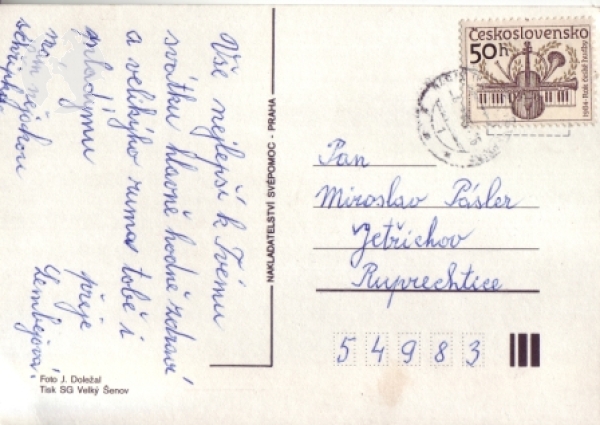 Vše nejlepší k Tvému
svátku hlavně hodně zdraví
a velikýho ruma tobě i
mladýmu přeje
Lembejová.
Foto J. Doležal
Tisk SG Velký Šenov
NAKLADATELSTVÍ SVÉPOMOC - PRAHA
Československo
50h
1984 · Rok české hudby
Pan
Miroslav Pásler
Jetřichov
Ruprechtice
54983